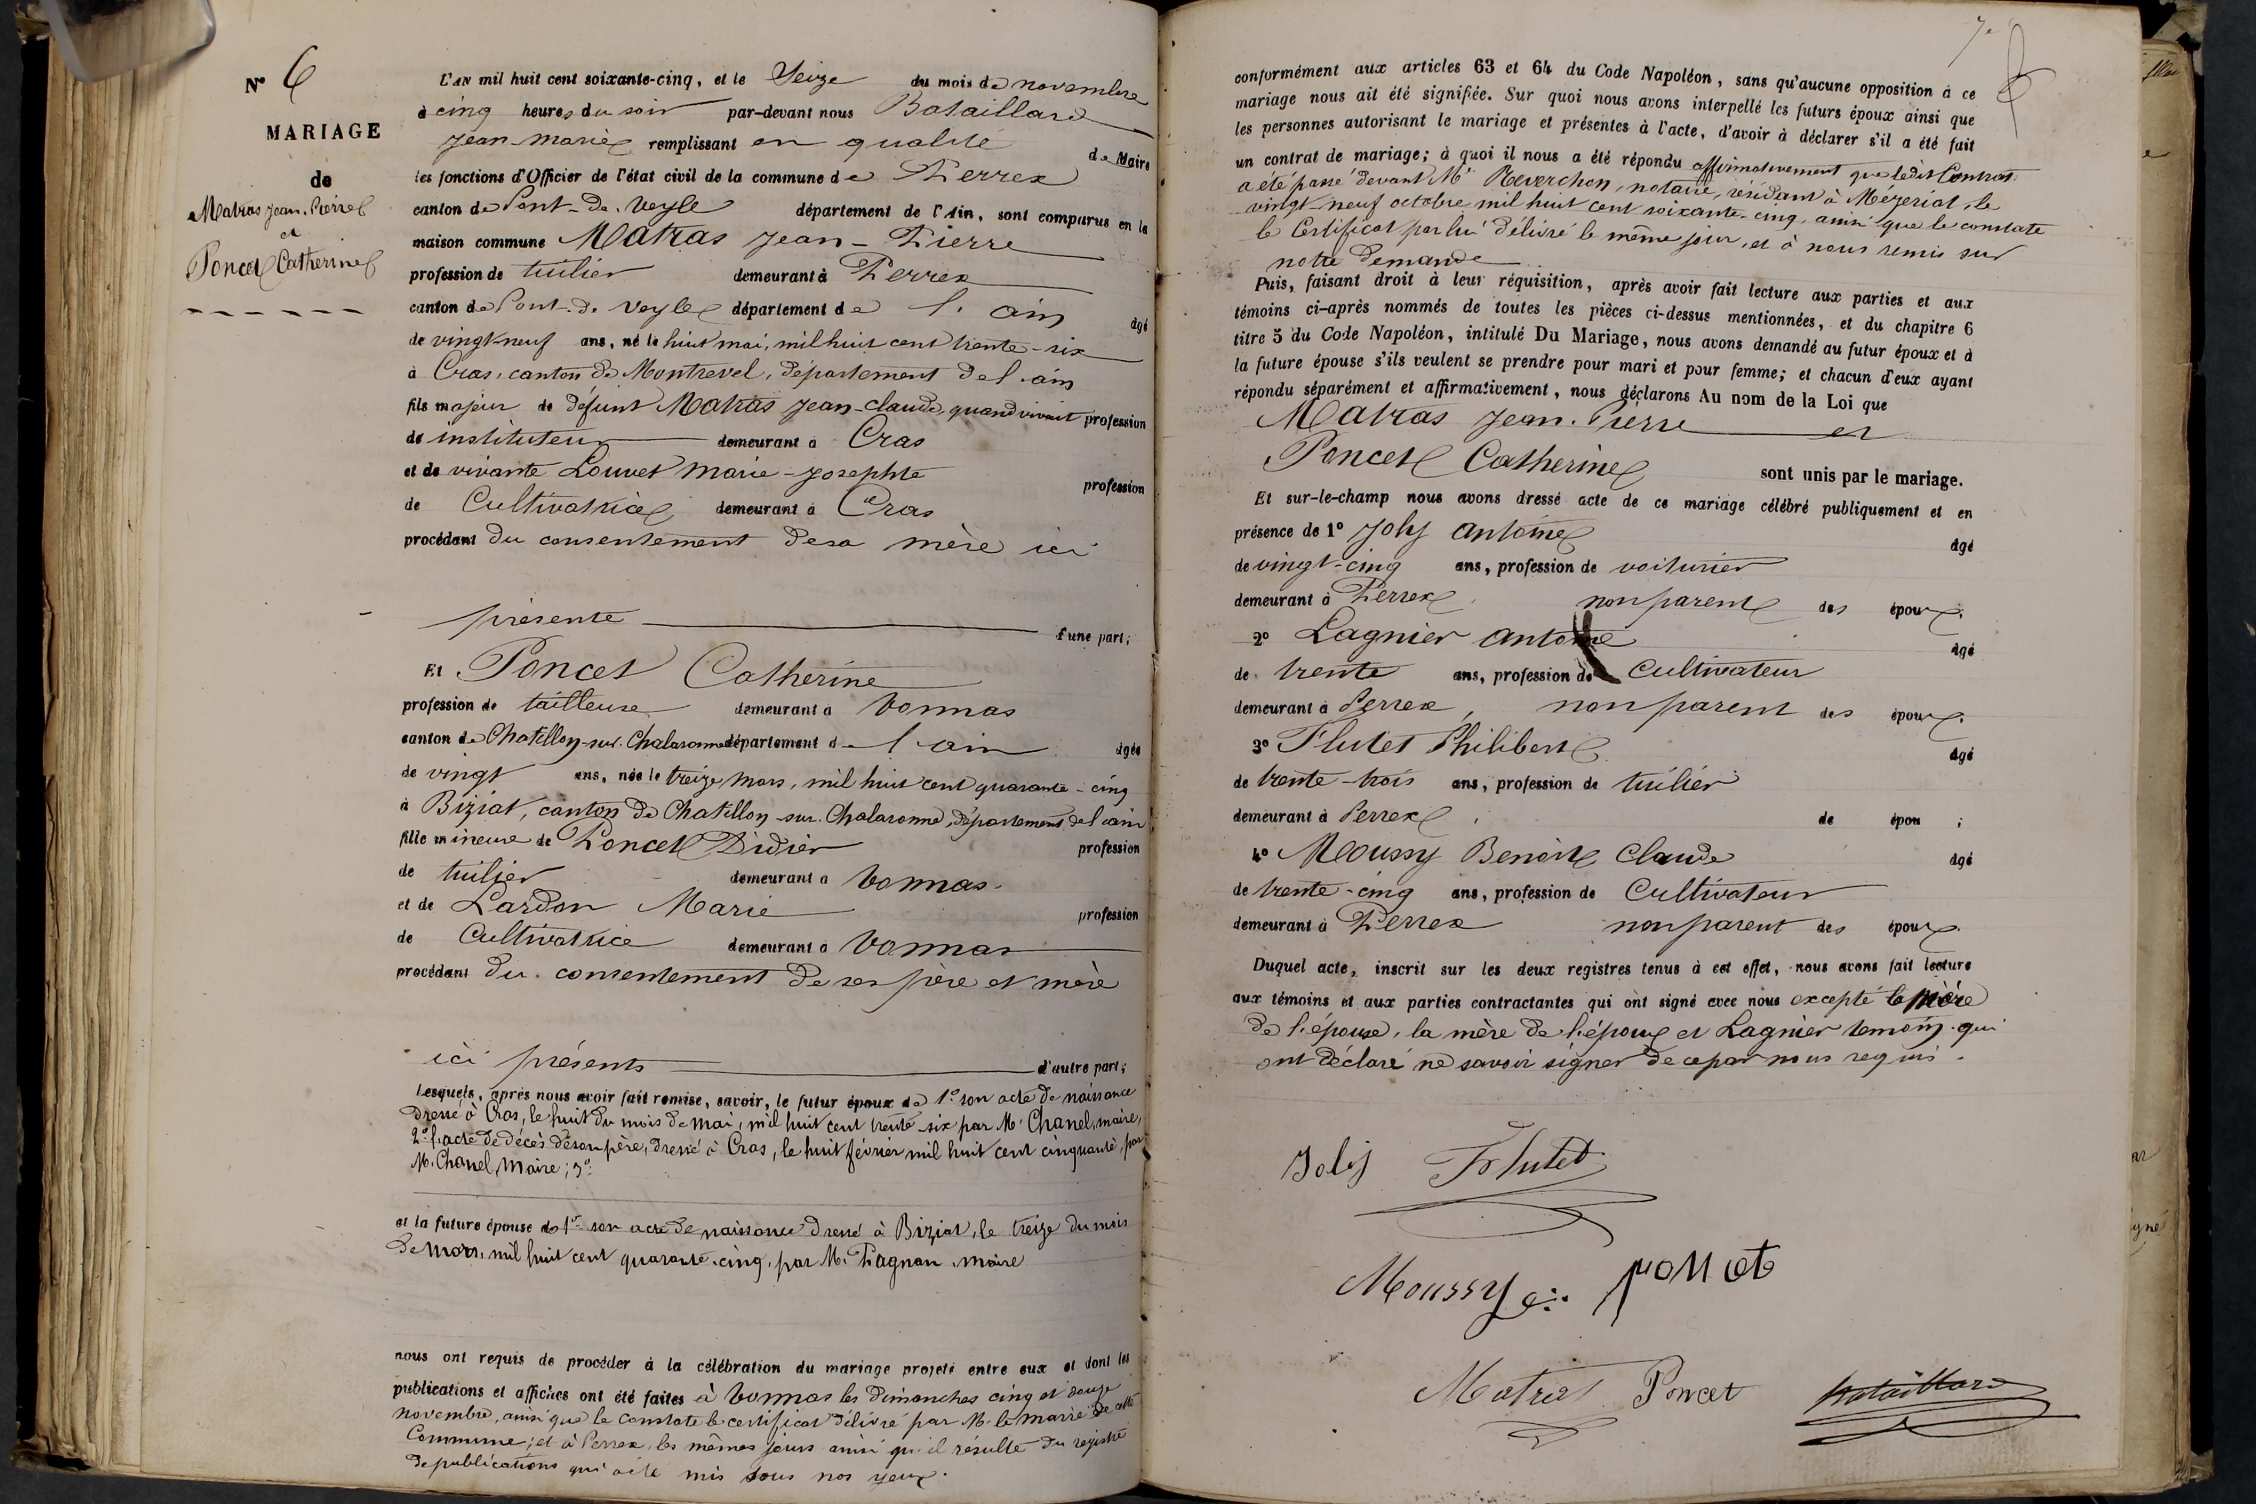 N° 6
MARIAGE
de
Matras Jean-Pierre
et
Poncet Catherine
L'AN mil huit cent soixante-cinq, et le Seize du mois de novembre
à cinq heures du soir par-devant nous Bataillard
Jean-Marie remplissant en qualité de Maire
les fonctions d'Officier de l'état civil de la commune de Perrex
canton de Pont-de-Veyle département de l'Ain, sont comparus en la
maison commune Matras Jean-Pierre
profession de tuilier demeurant à Perrex
canton de Pont-de-Veyle département de l'ain âgé
de vingt-neuf ans, né le huit mai, mil huit cent trente-six
à Cras, canton de Montrevel, département de l'ain
fils majeur de défunt Matras Jean-Claude, quand vivait profession
de instituteur demeurant à Cras
et de vivante Louvet Marie-Josephte profession
de Cultivatrice demeurant à Cras
procédant du consentement de sa mère ici
présente d'une part;
Et Poncet Catherine
profession de tailleuse demeurant à Vonnas
canton de Chatillon-sur-Chalaronne département de l'ain âgée
de vingt ans, née le treize mars, mil huit cent quarante-cinq
à Biziat, canton de Chatillon-sur-Chalaronne, département de l'ain
fille mineure de Poncet Didier profession
de tuilier demeurant à Vonnas
et de Lardon Marie profession
de Cultivatrice demeurant à Vonnas
procédant du consentement de ses père et mère
ici présents d'autre part;
Lesquels, après nous avoir fait remise, savoir, le futur époux de 1° son acte de naissance
dressé à Cras, le huit du mois de mai, mil huit cent trente-six par Mr Chanel, maire,
2° l'acte de décès de son père, dressé à Cras, le huit février mil huit cent cinquante, par
M. Chanel, Maire; 3°
et la future épouse de 1° son acte de naissance dressé à Biziat, le treize du mois
de mars, mil huit cent quarante-cinq, par M. Pagnon, maire
nous ont requis de procéder à la célébration du mariage projeté entre eux et dont les
publications et affiches ont été faites à Vonnas les dimanches cinq et douze
novembre, ainsi que le constate le certificat délivré par M. le maire de cette
Commune; et à Perrex, les mêmes jours ainsi qu'il résulte du registre
de publications qui a été mis sous nos yeux.
7e
conformément aux articles 63 et 64 du Code Napoléon, sans qu'aucune opposition à ce
mariage nous ait été signifiée. Sur quoi nous avons interpellé les futurs époux ainsi que
les personnes autorisant le mariage et présentes à l'acte, d'avoir à déclarer s'il a été fait
un contrat de mariage; à quoi il nous a été répondu affirmativement que ledit Contrat
a été passé devant Mr Reverchon, notaire, résidant à Mézeriat, le
vingt-neuf octobre mil huit cent soixante-cinq, ainsi que le constate
le Certificat par lui délivré le même jour, et à nous remis sur
notre demande
Puis, faisant droit à leur réquisition, après avoir fait lecture aux parties et aux
témoins ci-après nommés de toutes les pièces ci-dessus mentionnées, et du chapitre 6
titre 5 du Code Napoléon, intitulé Du Mariage, nous avons demandé au futur époux et à
la future épouse s'ils veulent se prendre pour mari et pour femme; et chacun d'eux ayant
répondu séparément et affirmativement, nous déclarons Au nom de la Loi que
Matras Jean-Pierre et
Poncet Catherine sont unis par le mariage.
Et sur-le-champ nous avons dressé acte de ce mariage célébré publiquement et en
présence de 1° Joly Antoine âgé
de vingt-cinq ans, profession de voiturier
demeurant à Perrex non parent des époux.
2° Lagnier Antoine âgé
de trente ans, profession de Cultivateur
demeurant à Perrex, non parent des époux.
3° Flutet Philibert âgé
de trente-trois ans, profession de tuilier
demeurant à Perrex de épou ;
4° Moussy Benoit Claude âgé
de trente-cinq ans, profession de Cultivateur
demeurant à Perrex non parent des époux.
Duquel acte, inscrit sur les deux registres tenus à cet effet, nous avons fait lecture
aux témoins et aux parties contractantes qui ont signé avec nous excepté la mère
de l'épouse, la mère de l'époux et Lagnier temoin qui
ont déclaré ne savoir signer de ce par nous requis.
Joly Flutet
Moussy poncet
Matras Poncet Bataillard